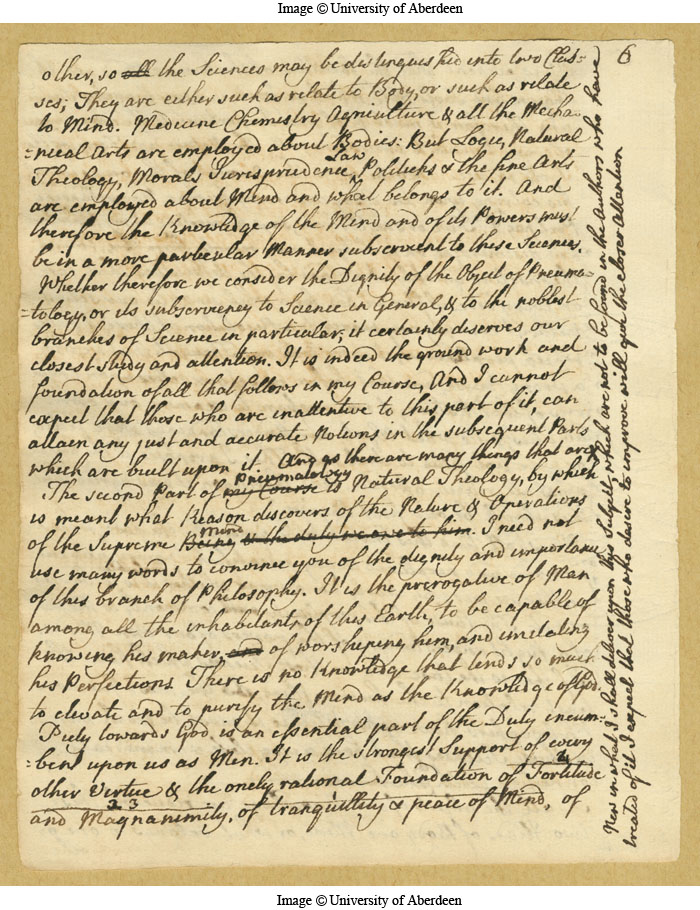 Image © University of Aberdeen
6
other, so all the Sciences may be distinguished into two Clas-
ses; They are either such as relate to Body, or such as relate
to Mind. Medicine Chemestry Agriculture & all the Mecha-
=nical Arts are employed about Bodies: But Logic, Natural
Theology, Morals Jurisprudence, Law Politicks & the fine Arts
are employed about Mind and what belongs to it. And
therefore the Knowledge of the Mind and of its Powers must
be in a more particular Manner subservient to these Sciences.
Whether therefore we consider the Dignity of the Object of Pneuma-
=tology, or its subserviency to Science in General, & to the noblest
branches of Science in particular; it certainly deserves our
closest study and attention. It is indeed the ground work and
foundation of all that follows in my Course, And I cannot
expect that those who are inattentive to this part of it, can
attain any just and accurate Notions in the subsequent Parts
which are built upon it. And as there are many things that are
The second Part of my Course Pneumatology is Natural Theology, by which
is meant what Reason discovers of the Nature & Operations
of the Supreme Being Mind & the duty we owe to him. I need not
use many words to convince you of the dignity and importance
of this branch of Philosophy. It is the prerogative of Man
among all the inhabitants of this Earth, to be capable of
knowing his maker, and of worshiping him, and imitating
his Perfections. There is no Knowledge that tends so much
to elevate and to purify the Mind as the Knowledge of God.
Piety towards God is an essential part of the Duty incum-
=bent upon us as Men. It is the strongest Support of every
other Virtue & the onely rational Foundation of Fortitude
and Magnanimity, of tranquillity & peace of Mind, of
New in what I shall deliver upon this Subject, which are not to be found in the Authors who have
treated of it I expect that those who desire to improve will give the closer attention
Image © University of Aberdeen